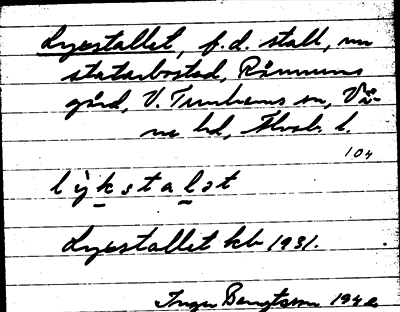 Lyxestallet, f.d. stall, nu
statarbostad, Rånnums
gård, V. Tunhems sn, Vä-
ne hd, Älvsb. l.
104
lỳkstalət
Lyxestallet kb 1931.
Inger Bengtsson 1942